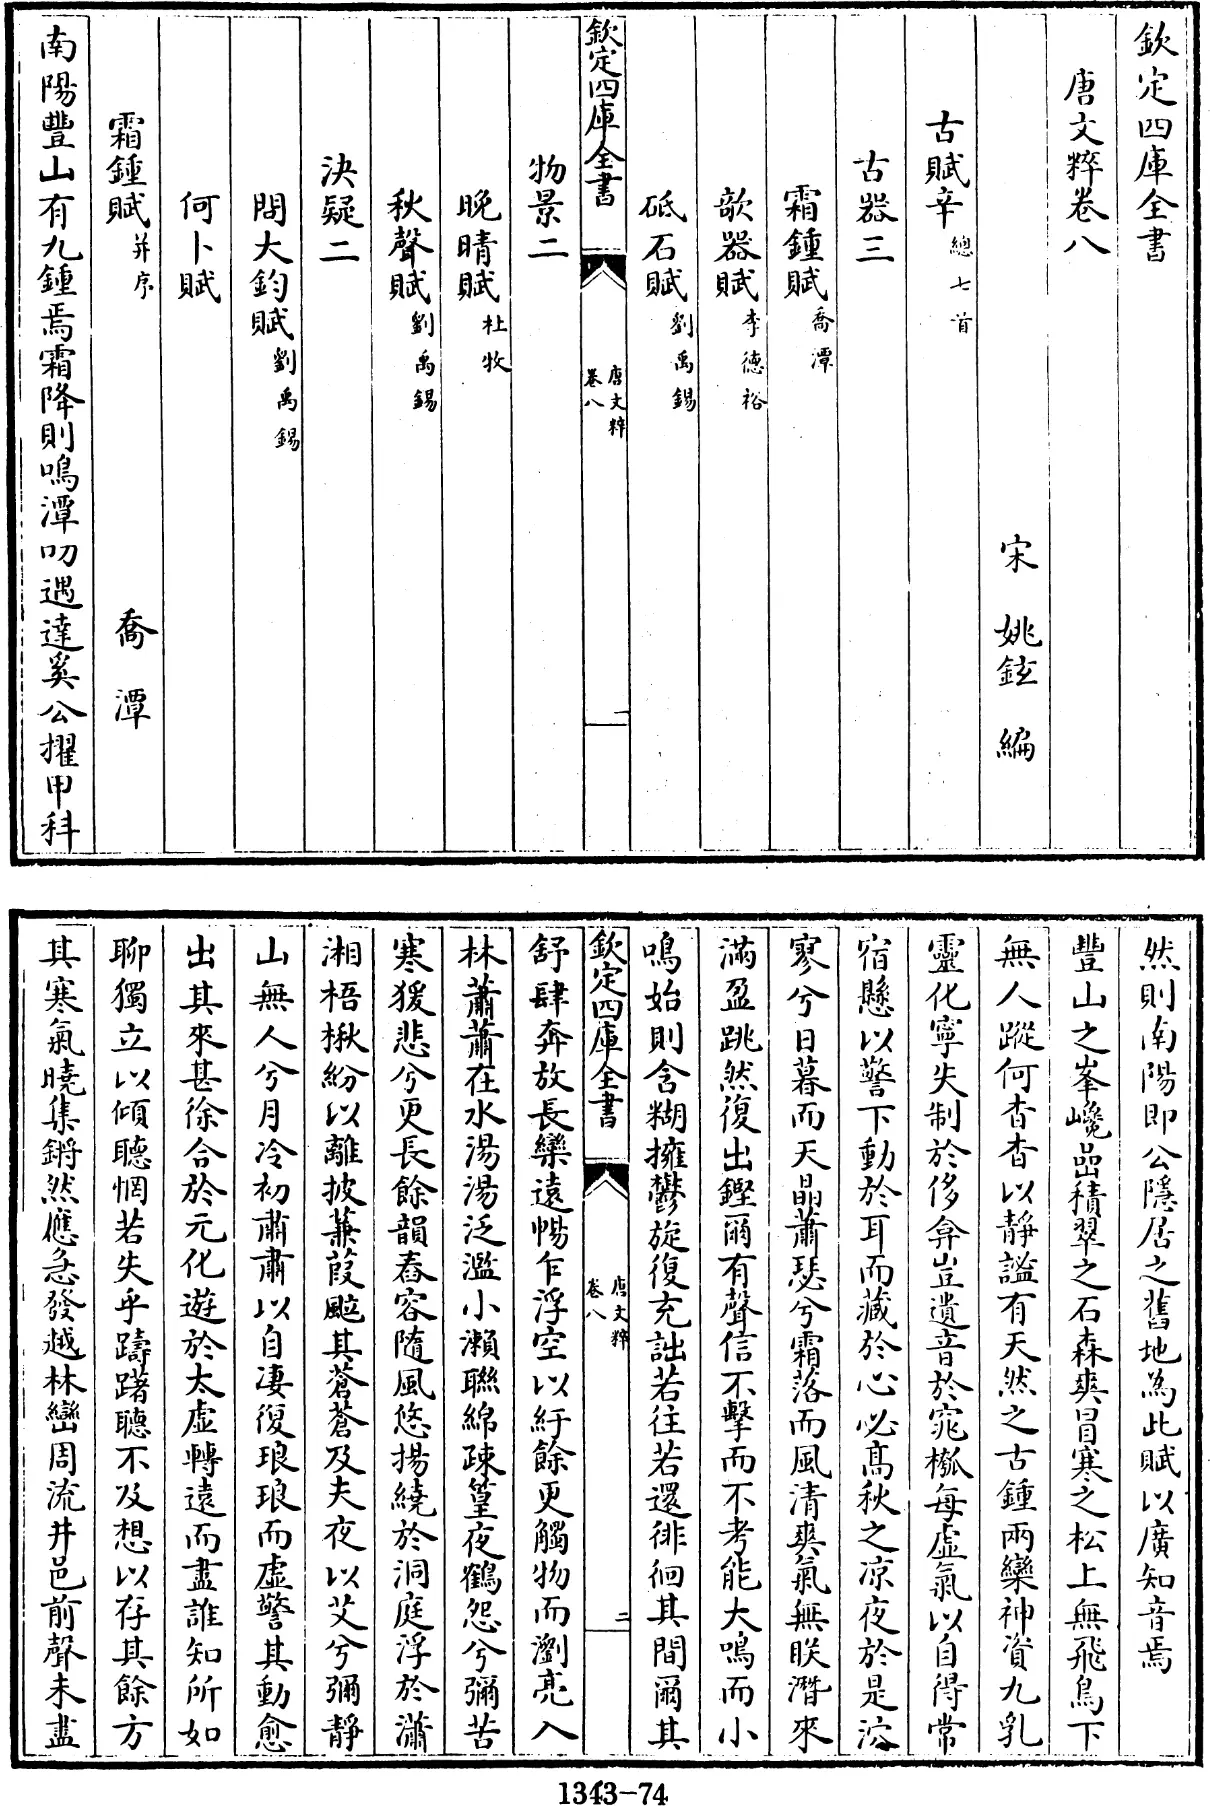 欽定四庫全書
唐文粹卷八
宋 姚鉉 編
古賦辛 總七首
古器三
霜鍾賦 喬潭
欹器賦 李德裕
砥石賦 劉禹錫
欽定四庫全書 唐文粹 卷八 一
物景二
晚晴賦 杜牧
秋聲賦 劉禹錫
決疑二
問大鈞賦 劉禹錫
何卜賦
霜鍾賦 并序 喬潭
南陽豐山有九鍾焉霜降則鳴潭叨遇達奚公擢甲科
然則南陽即公隱居之舊地為此賦以廣知音焉
豐山之峯巉嵒積翠之石森爽冒寒之松上無飛鳥下
無人蹤何杳杳以靜謐有天然之古鍾兩欒神資九乳
靈化寧失制於侈弇豈遺音於窕槬每虛氣以自得常
宿懸以警下動於耳而藏於心必高秋之凉夜於是泬
寥兮日暮而天晶蕭瑟兮霜落而風清爽氣無朕潛來
滿盈跳然復出鏗爾有聲信不擊而不考能大鳴而小
鳴始則含糊擁鬱旋復充詘若往若還徘徊其間爾其
欽定四庫全書 唐文粹 卷八 二
舒肆奔放長欒遠暢乍浮空以紆餘更觸物而瀏亮入
林蕭蕭在水湯湯泛濫小瀨聯綿疎篁夜鶴怨兮彌苦
寒猨悲兮更長餘韻舂容隨風悠揚繞於洞庭浮於瀟
湘梧楸紛以離披蒹葭颭其蒼蒼及夫夜以艾兮彌靜
山無人兮月冷初肅肅以自凄復琅琅而虛警其動愈
出其來甚徐合於元化遊於太虛轉遠而盡誰知所如
聊獨立以傾聽惘若失乎躊躇聽不及想以存其餘方
其寒氣曉集鏘然應急發越林巒周流井邑前聲未盡
1343-74